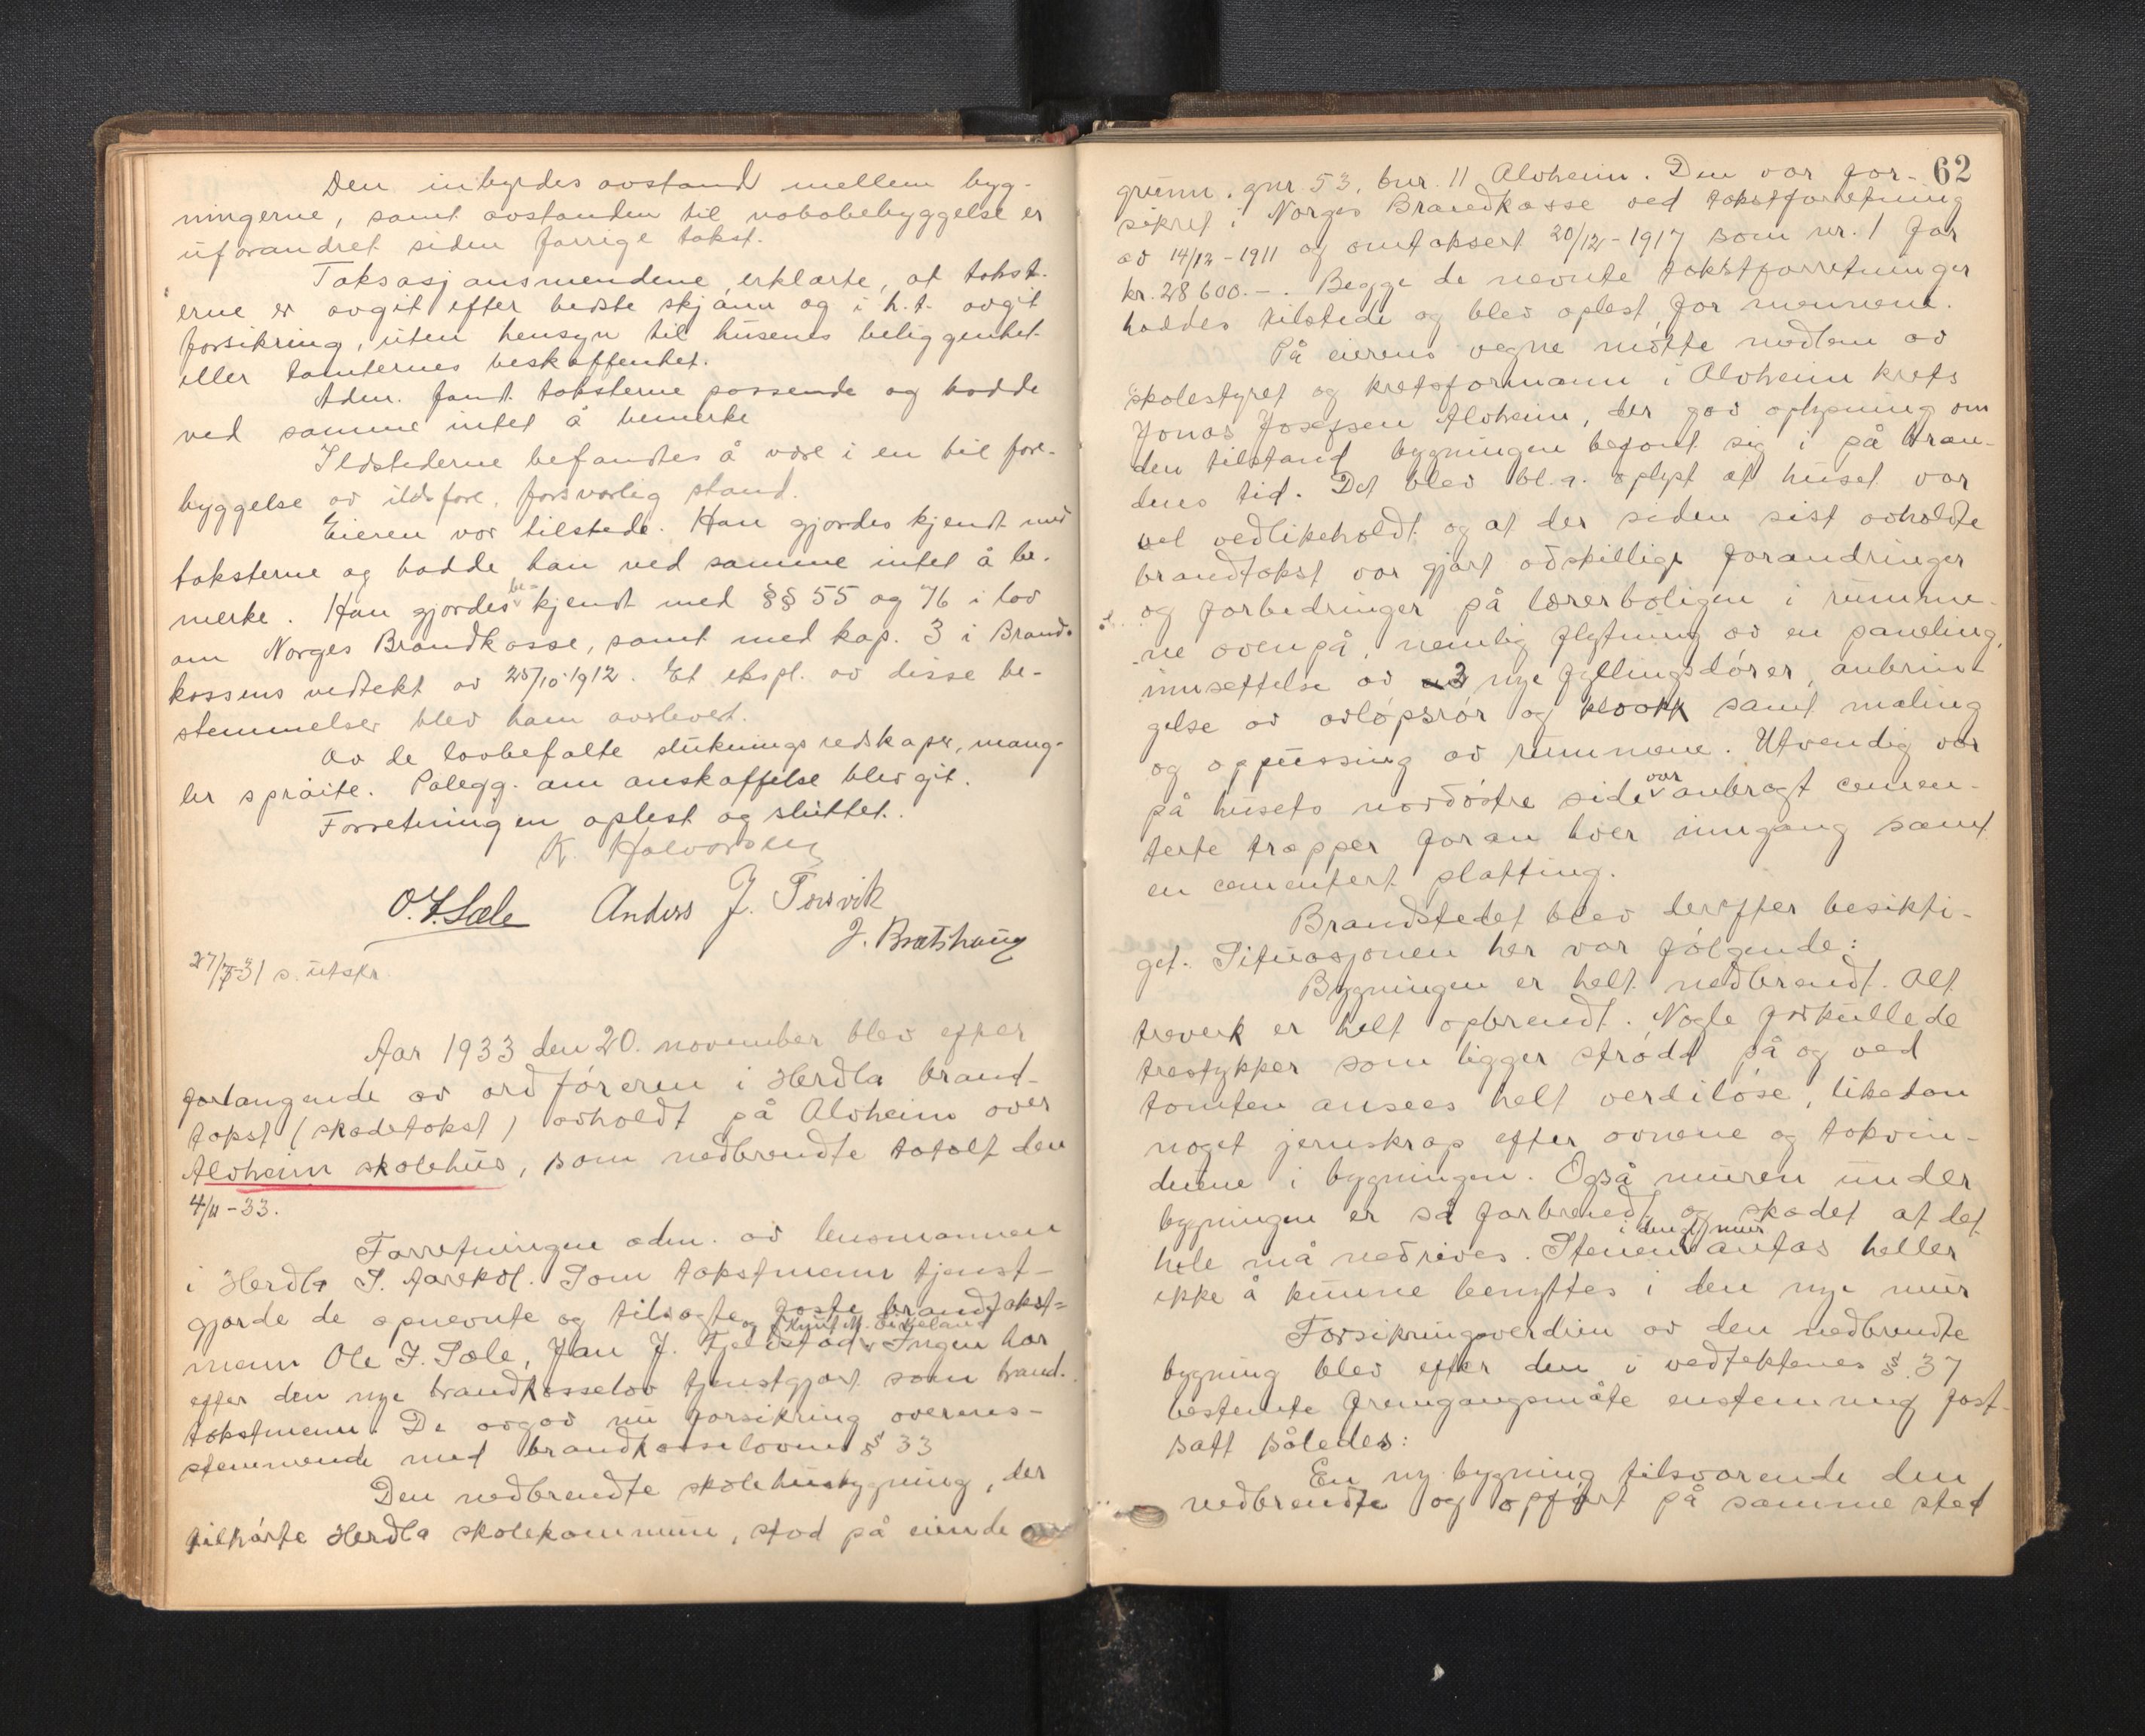 Den inbyrdes avstand mellem byg-
ningerne, samt avstanden til nabobebyggelse er
uforandret siden forrige takst.
Taksasjonsmendene erklærte, at takst-
erne er avgit efter bedste skjønn og i h.t. avgit
forsikring, uten hensyn til husenes beliggenhet
eller tomternes beskaffenhet.
Adm. fant taksterne passende og hadde
ved samme intet å bemerke
Ildstederne befandtes å være i en til fore-
byggelse av ildsfare, forsvarlig stand.
Eieren var tilstede. Han gjordes kjendt med
taksterne og hadde han ved samme intet å be-
merke. Han gjordes be- kjendt med §§ 55 og 76 i lov
om Norges Brandkasse, samt med kap. 3 i Brand-
kassens vedtekt av 25/10 1912. Et ekspl. av disse be-
stemmelser blev ham avlevert.
Av de lovbefalte sluknings redskaper, mang-
ler sprøite. Palegg. om anskaffelse blev git.
Forretningen oplest og sluttet.
K. Halvorsen
O. J. Sæle Anders J. Torsvik
J. Bratshaug
27/7-31 s. utskr.
Aar 1933 den 20. november blev efter
forlangende av ordføreren i Herdla brand-
takst (skadetakst) avholdt på Alvheim over
Alvheim skolehus, som nedbrendte totalt den
4/11-33.
Forretningen adm. av lensmannen
i Herdla S. Aarekol. Som takstmenn tjenst-
gjorde de opnevnte og tilsagte faste brandtakst-
og Knut M. Eikeland
menn Ole J. Sæle, Jan J. Fjeldstad. Ingen har
efter den nye brandkasselov tjenstgjort som brand-
takstmenn. De avgav nu forsikring overens-
stemmende med brandkasselovens § 33
Den nedbrendte skolehusbygning, der
tilhørte Herdla skolekommune, stod på eiende
62
grunn, gnr. 53, bnr. 11 Alvheim. Den var for-
sikret i Norges Brandkasse ved takstforretning
av 14/12-1911 og omtaksert 20/12-1917 som nr. 1 for
kr. 28 600.-. Begge de nevnte takstforretninger
haddes tilstede og blev oplest for mennene.
På eierens vegne møtte medlem av
skolestyret og kretsformann i Alvheim krets
Jonas Josefsen Alvheim, der gav oplysning om
den tilstand bygningen befant sig i på bran-
dens tid. Det blev bl.a. oplyst at huset var
vel vedlikeholdt og at der siden sist avholdte
brandtakst var gjort adskillige forandringer
og forbedringer på lærerboligen i rumme-
ne ovenpå, nemlig flytning av en paneling,
innsettelse av 3 nye fyllingsdører, anbrin-
gelse av avløpsrør og kloakk samt maling
og oppussing av rummene. Utvendig var
på husets nordøstre side var anbragt cemen-
terte trapper foran hver inngang samt
en cementert platting.
Brandstedet blev derefter besikti-
get. Situasjonen her var følgende:
Bygningen er helt nedbrendt. Alt
treverk er helt opbrendt. Nogle forkullede
trestykker som ligger strødd på og ved
tomten ansees helt verdiløse, likedan
noget jernskrap efter ovnene og takvin-
duene i bygningen. Også muren under
bygningen er så forbrendt og skadet at det
hele må nedrives. Stenen i den gl. mur antas heller
ikke å kunne benyttes i den nye mur
Forsikringsverdien av den nedbrendte
bygning blev efter den i vedtektenes § 37
bestemte fremgangsmåte enstemmig fast-
satt således:
En ny bygning tilsvarende den
nedbrendte og opført på samme sted